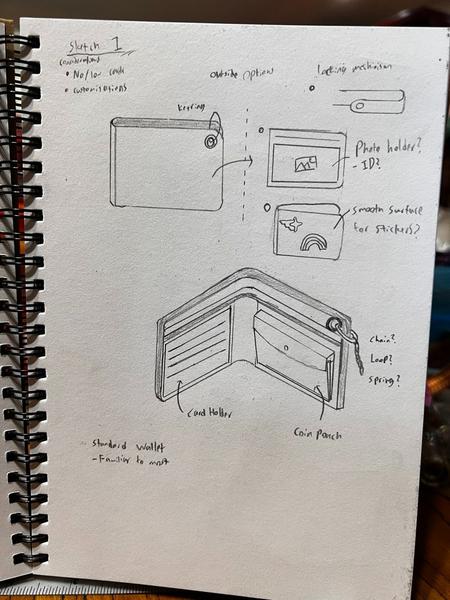 Sketch 1
considerations
• No/low cards
• customisations
outside options
locking mechanism
keyring
Photo holder?
- ID?
smooth surface
for stickers?
chain?
Loop?
spring?
Card Holder
Coin Pouch
Standard wallet
- Familiar to most